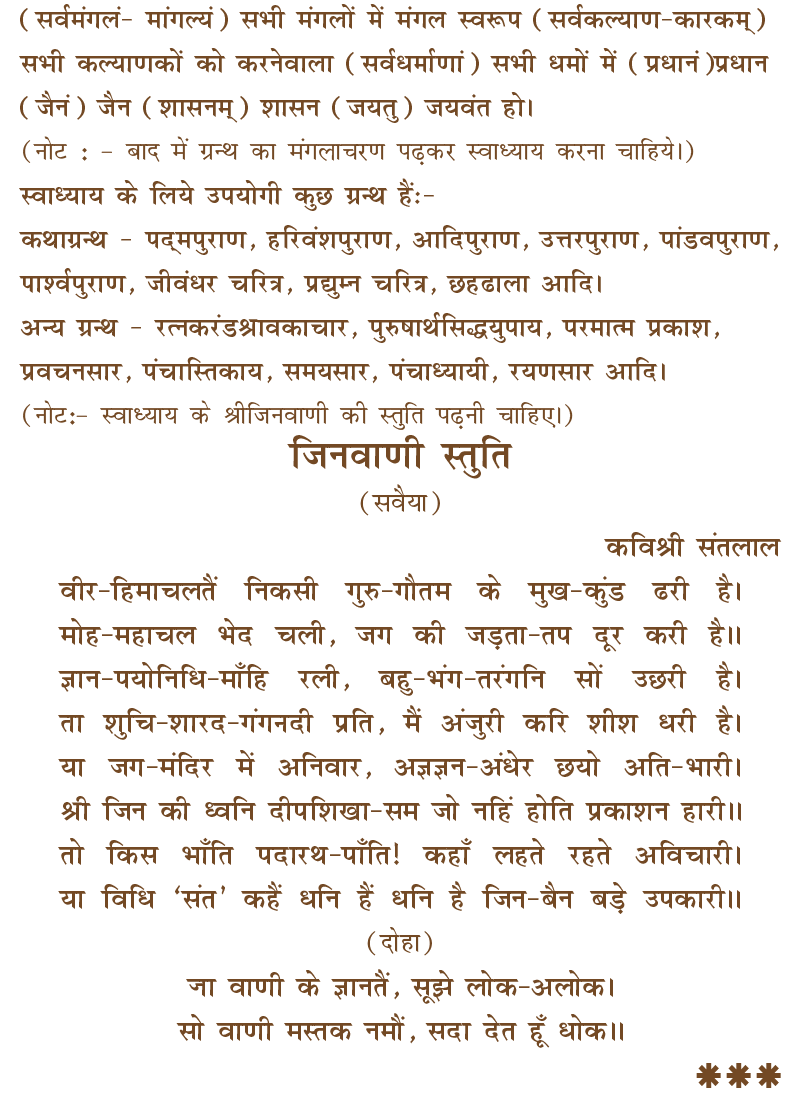 (सर्वमंगलं- मांगल्यं) सभी मंगलों में मंगल स्वरूप (सर्वकल्याण-कारकम्)
सभी कल्याणकों को करनेवाला (सर्वधर्माणां) सभी धमों में (प्रधानं)प्रधान
(जैनं) जैन (शासनम्) शासन (जयतु) जयवंत हो।
(नोट : - बाद में ग्रन्थ का मंगलाचरण पढ़कर स्वाध्याय करना चाहिये।)
स्वाध्याय के लिये उपयोगी कुछ ग्रन्थ हैंः-
कथाग्रन्थ - पद्मपुराण, हरिवंशपुराण, आदिपुराण, उत्तरपुराण, पांडवपुराण,
पार्श्वपुराण, जीवंधर चरित्र, प्रद्युम्न चरित्र, छहढाला आदि।
अन्य ग्रन्थ - रत्नकरंडश्रावकाचार, पुरुषार्थसिद्धयुपाय, परमात्म प्रकाश,
प्रवचनसार, पंचास्तिकाय, समयसार, पंचाध्यायी, रयणसार आदि।
(नोटः- स्वाध्याय के श्रीजिनवाणी की स्तुति पढ़नी चाहिए।)
जिनवाणी स्तुति
(सवैया)
कविश्री संतलाल
वीर-हिमाचलतैं निकसी गुरु-गौतम के मुख-कुंड ढरी है।
मोह-महाचल भेद चली, जग की जड़ता-तप दूर करी है॥
ज्ञान-पयोनिधि-माँहि रली, बहु-भंग-तरंगनि सों उछरी है।
ता शुचि-शारद-गंगनदी प्रति, मैं अंजुरी करि शीश धरी है।
या जग-मंदिर में अनिवार, अज्ञज्ञन-अंधेर छयो अति-भारी।
श्री जिन की ध्वनि दीपशिखा-सम जो नहिं होति प्रकाशन हारी॥
तो किस भाँति पदारथ-पाँति! कहाँ लहते रहते अविचारी।
या विधि ‘संत’ कहैं धनि हैं धनि है जिन-बैन बड़े उपकारी॥
(दोहा)
जा वाणी के ज्ञानतैं, सूझे लोक-अलोक।
सो वाणी मस्तक नमौं, सदा देत हूँ धोक॥